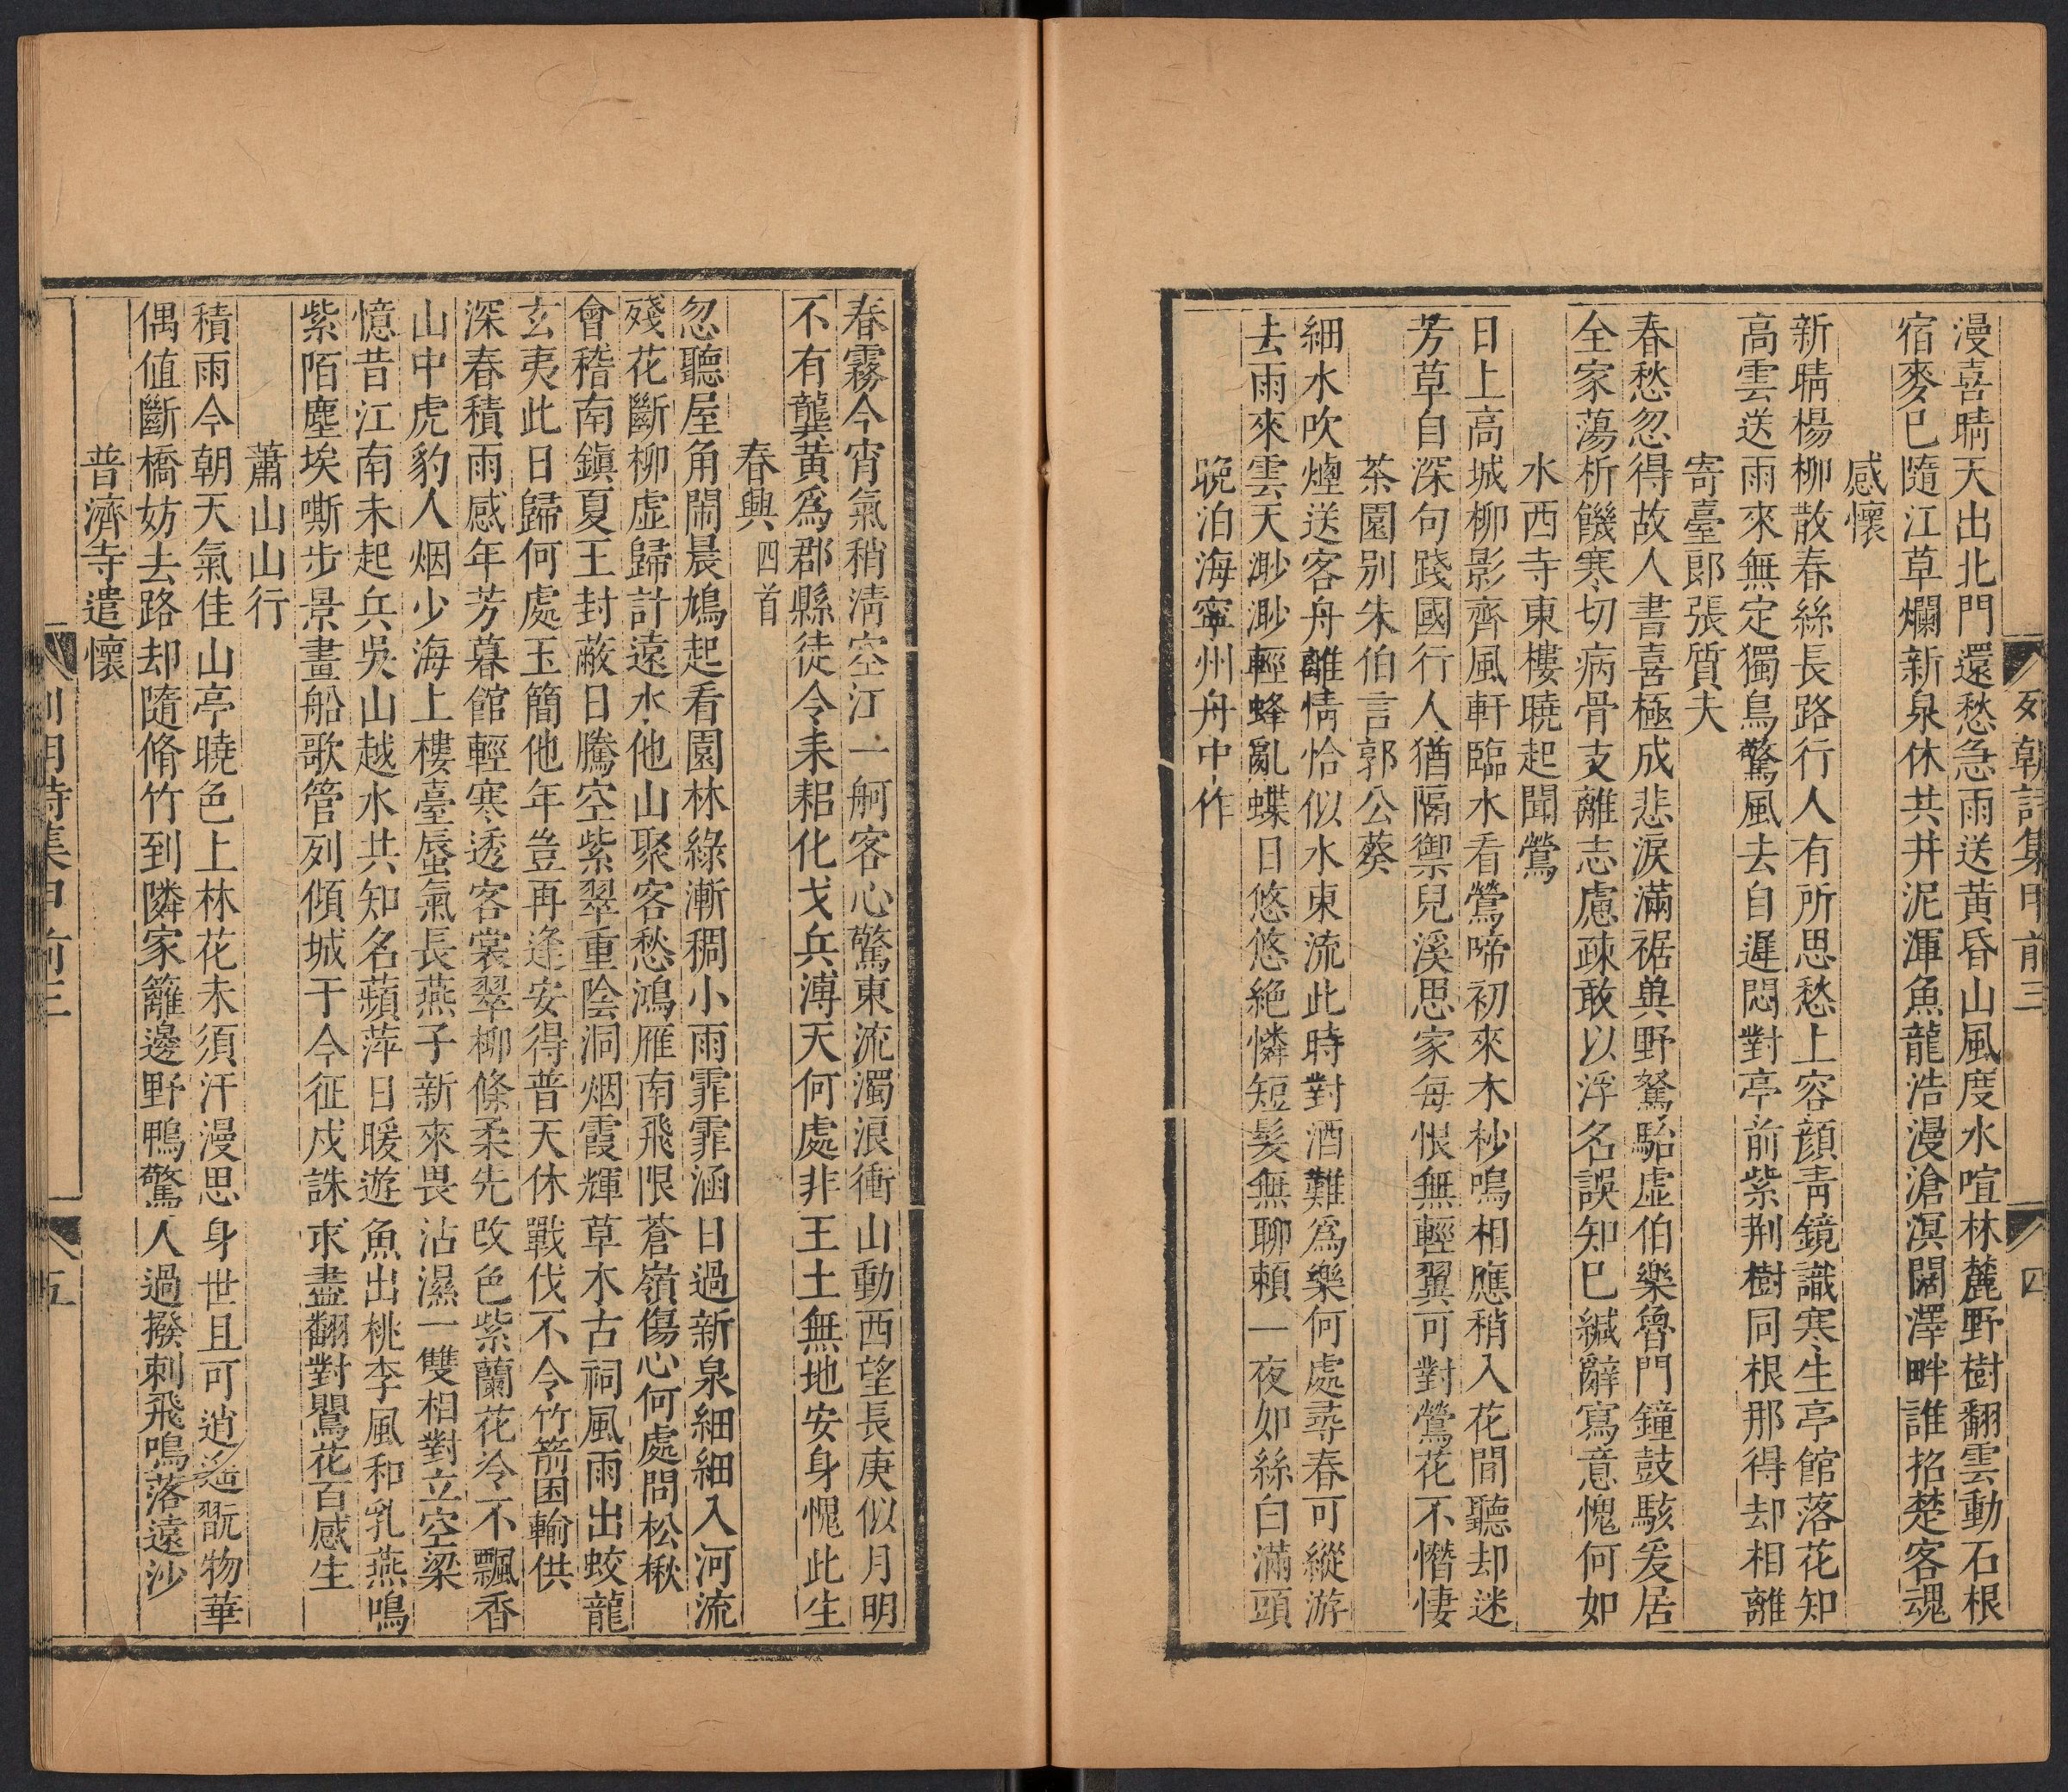 列朝詩集甲前三 四
漫喜晴天出北門還愁急雨送黃昏山風度水喧林麓野樹翻雲動石根
宿麥已隨江草爛新泉休共井泥渾魚龍浩漫滄溟闊澤畔誰招楚客魂
感懷
新晴楊柳散春絲長路行人有所思愁上容顔靑鏡識寒生亭館落花知
高雲送雨來無定獨鳥驚風去自遲悶對亭前紫荆樹同根那得却相離
寄臺郎張質夫
春愁忽得故人書喜極成悲淚滿裾與野駑駘虛伯樂魯門鐘鼓駭爰居
全家蕩析饑寒切病骨支離志慮疎敢以浮名誤知巳緘辭寫意愧何如
水西寺東樓曉起聞鶯
日上高城柳影齊風軒臨水看鶯啼初來木杪鳴相應稍入花間聽却迷
芳草自深句踐國行人猶隔禦兒溪思家每恨無輕翼可對鶯花不憯悽
茶園别朱伯言郭公葵
細水吹煙送客舟離情恰似水東流此時對酒難爲樂何處尋春可縱游
去雨來雲天渺渺輕蜂亂蝶日悠悠絕憐短髮無聊賴一夜如絲白滿頭
晚泊海寧州舟中作
春霧今宵氣稍淸空江一舸客心驚東流濁浪衝山動西望長庚似月明
不有龔黃爲郡縣徒令耒耜化戈兵溥天何處非王土無地安身愧此生
春興 四首
忽聽屋角鬧晨鳩起看園林綠漸稠小雨霏霏涵日過新泉細細入河流
殘花斷柳虛歸計遠水他山聚客愁鴻雁南飛限蒼嶺傷心何處問松楸
會稽南鎭夏王封蔽日騰空紫翠重陰洞烟霞輝草木古祠風雨出蛟龍
玄夷此日歸何處玉簡他年豈再逢安得普天休戰伐不令竹箭困輸供
深春積雨感年芳暮館輕寒透客裳翠柳條柔先改色紫蘭花冷不飄香
山中虎豹人烟少海上樓臺蜃氣長燕子新來畏沾濕一雙相對立空梁
憶昔江南未起兵吳山越水共知名蘋萍日暖遊魚出桃李風和乳燕鳴
紫陌塵埃嘶步景畫船歌管列傾城于今征戍誅求盡翻對鶯花百感生
蕭山山行
積雨今朝天氣佳山亭曉色上林花未須汗漫思身世且可逍遙翫物華
偶值斷橋妨去路却隨脩竹到隣家籬邊野鴨驚人過撥刺飛鳴落遠沙
普濟寺遣懷
列朝詩集甲前三 五